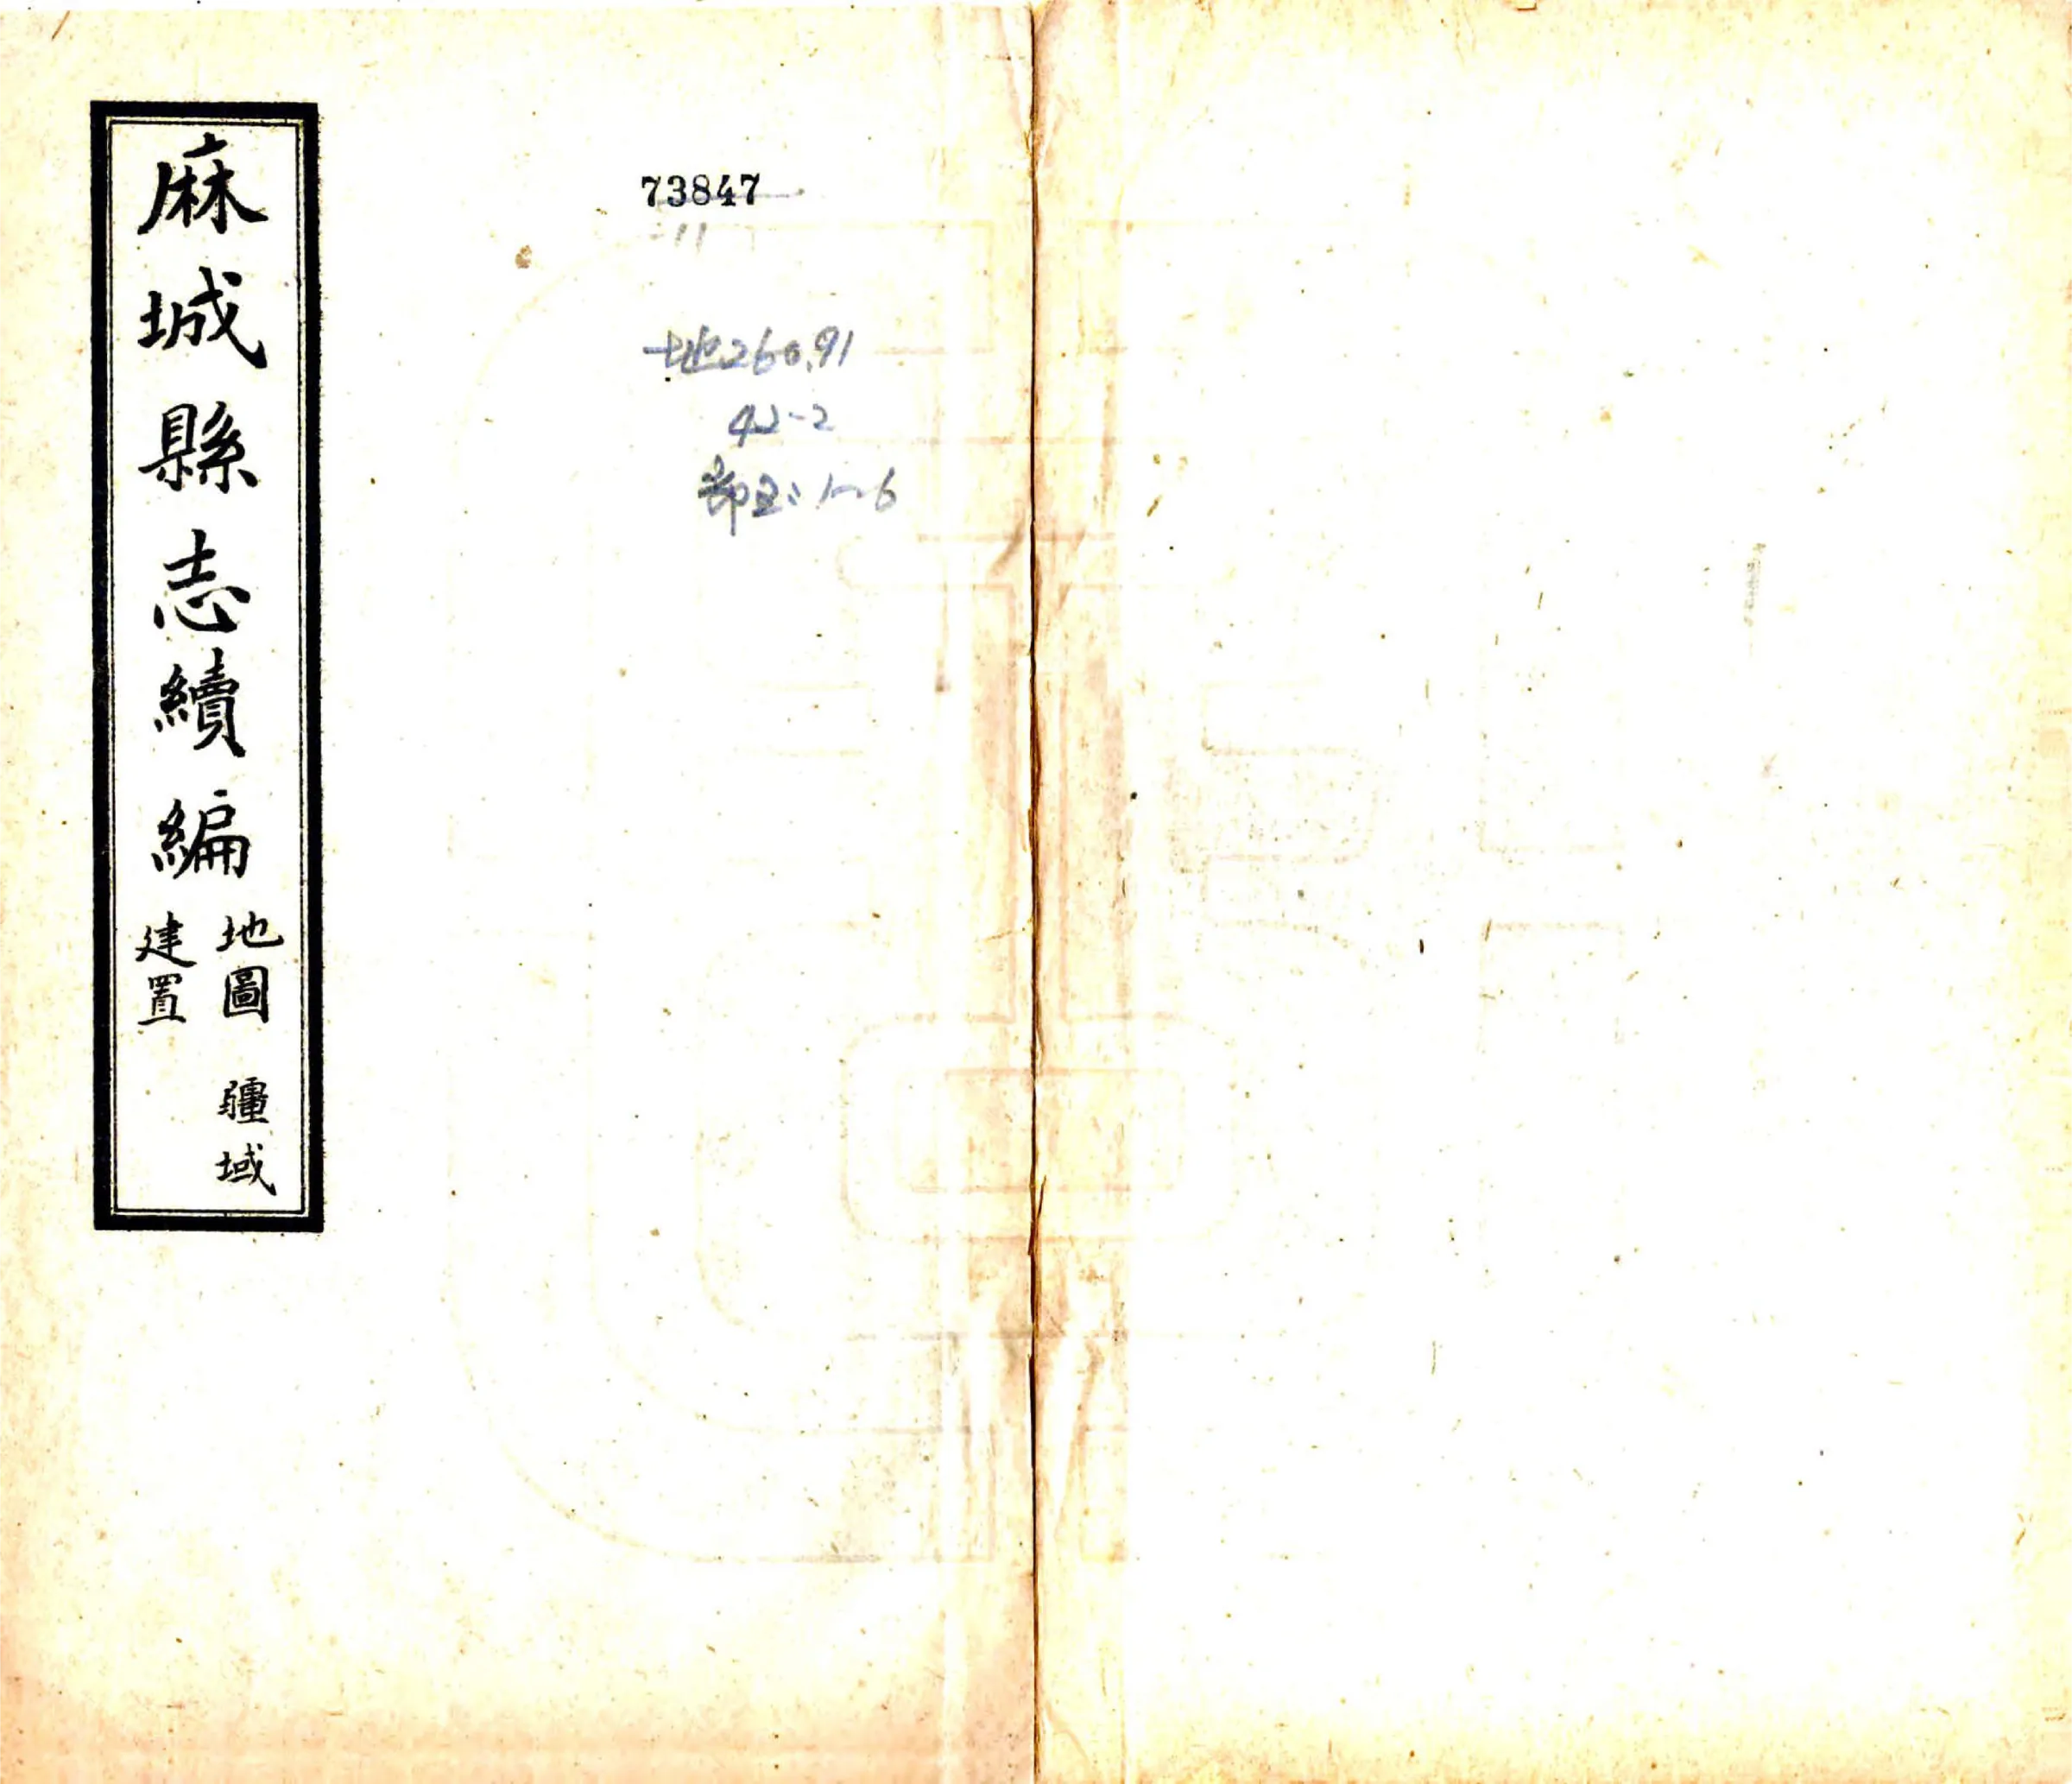 麻城縣志續編
地圖 疆域
建置
73847
-11
地260.91
42-2
部2:1~6